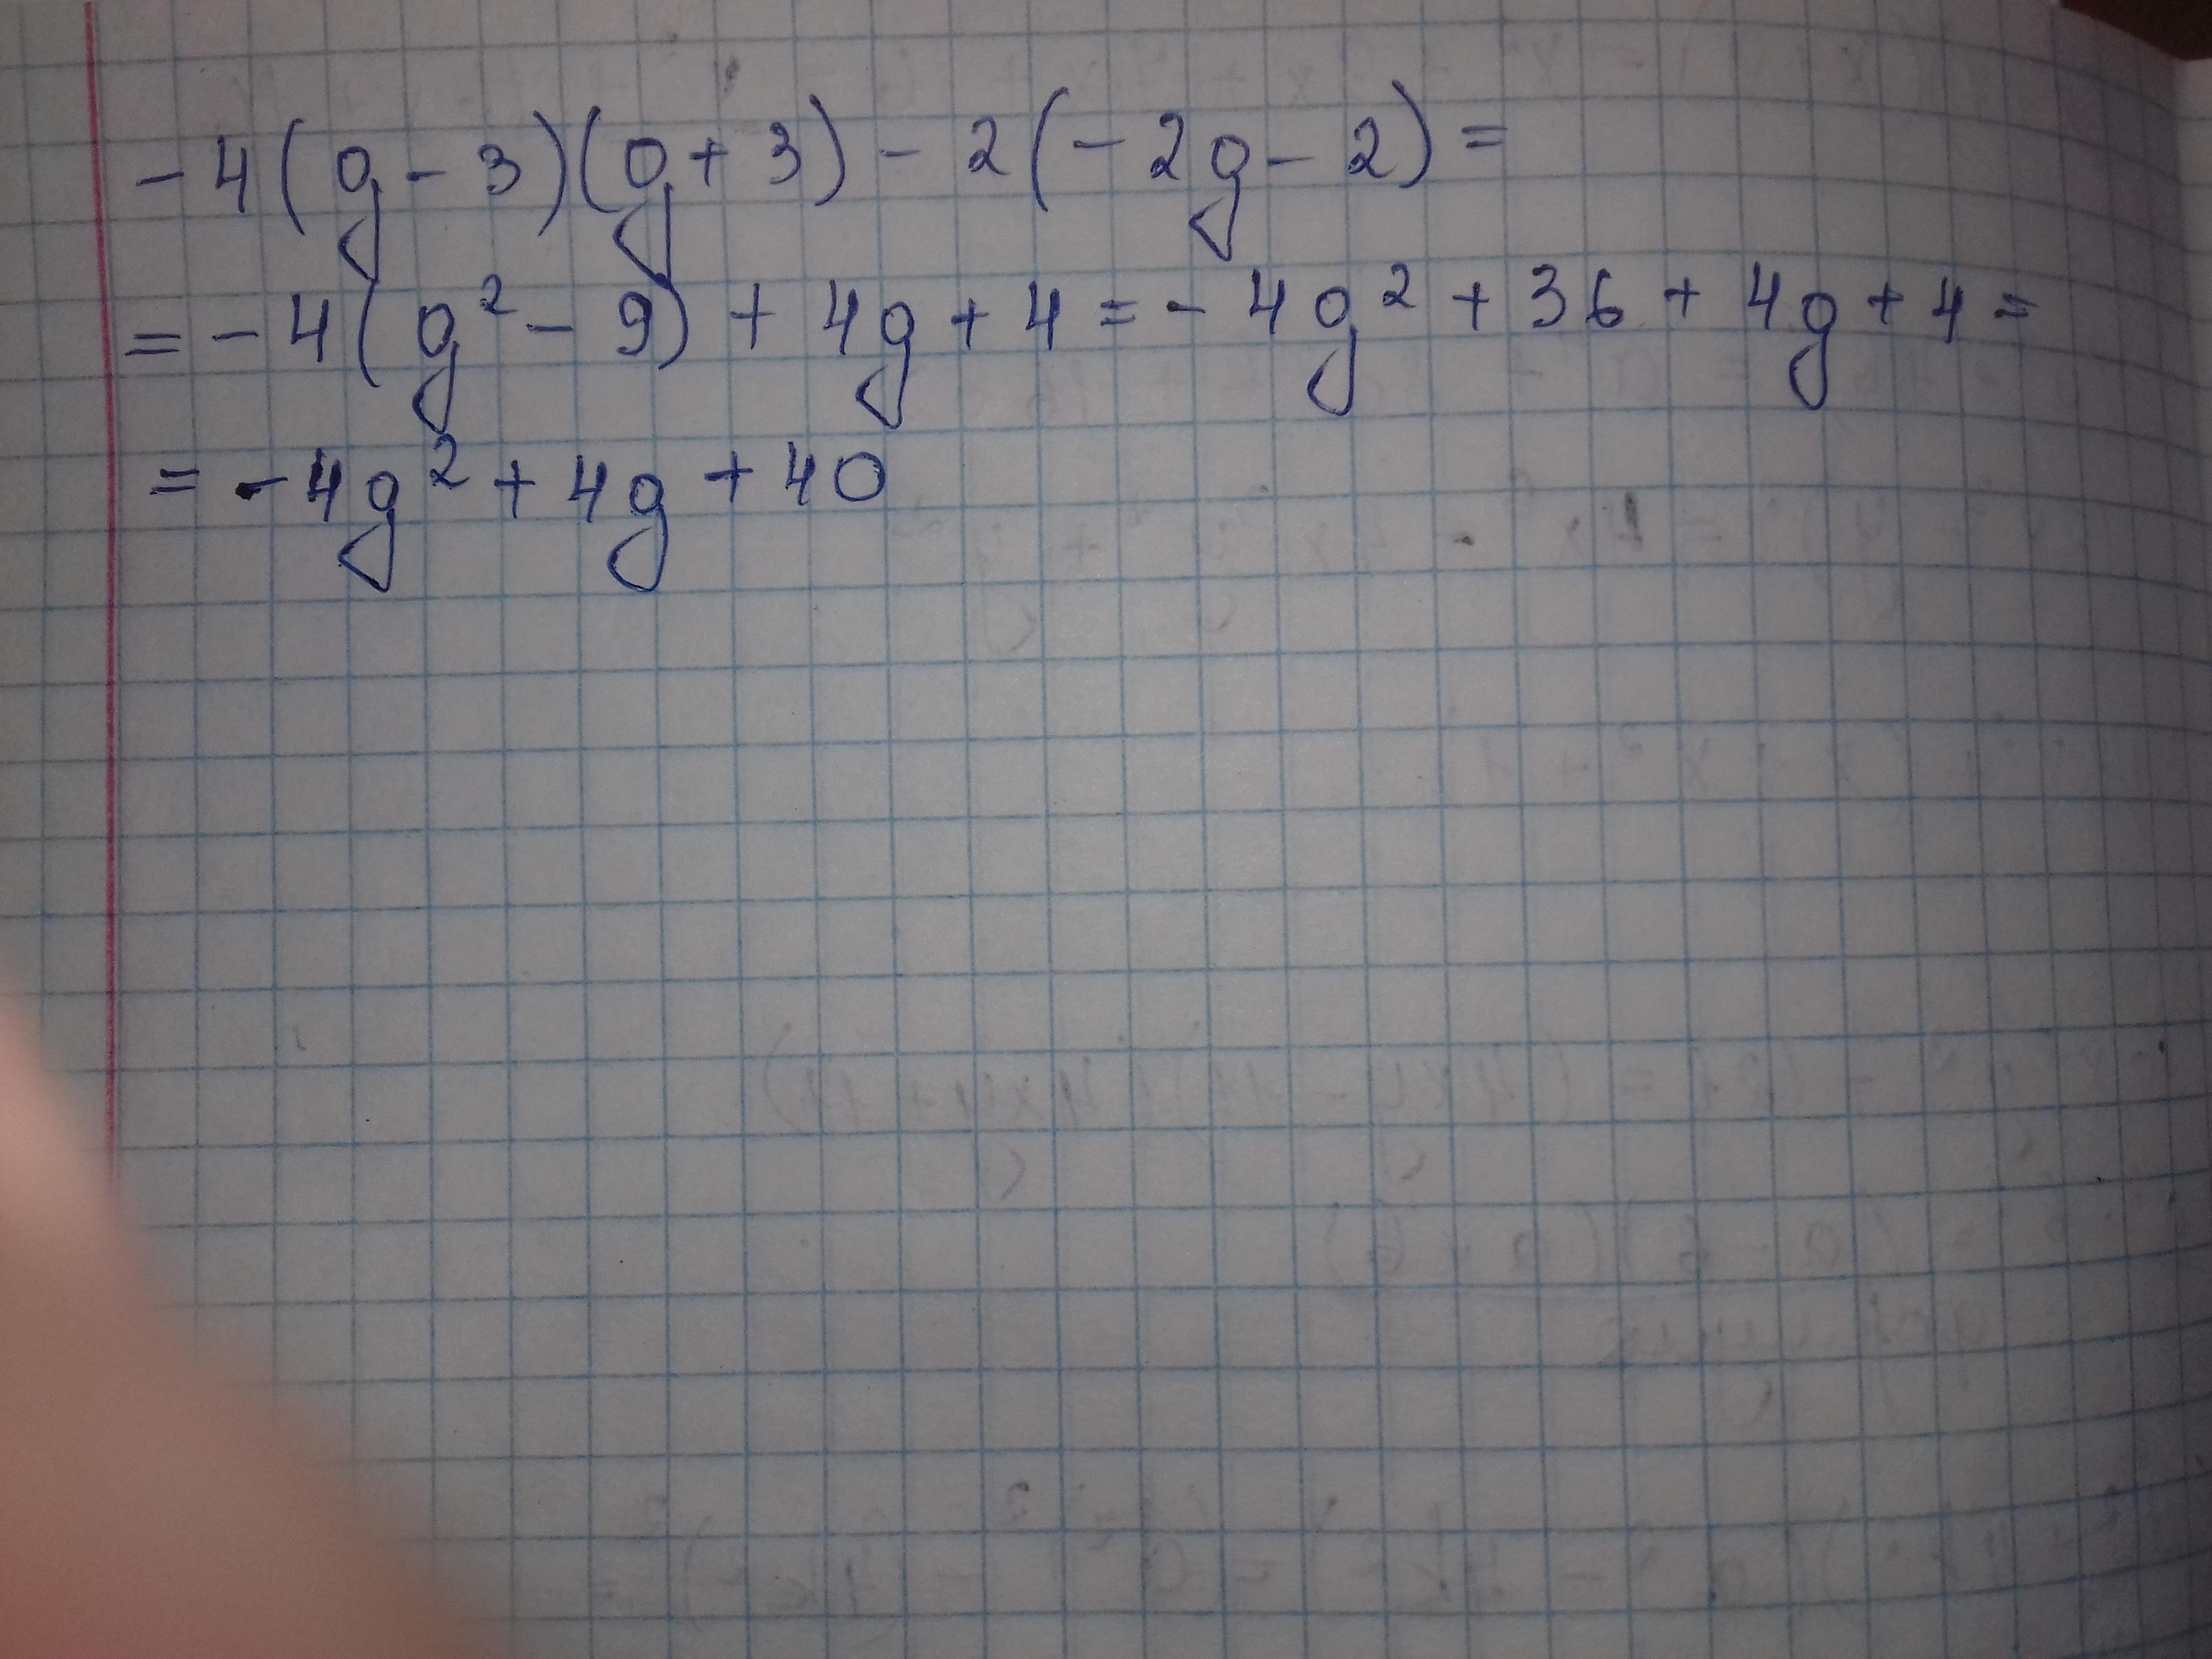 - 4(g - 3)(g + 3) - 2(- 2g - 2) =
= - 4(g² - 9) + 4g + 4 = - 4g² + 36 + 4g + 4 =
= - 4g² + 4g + 40